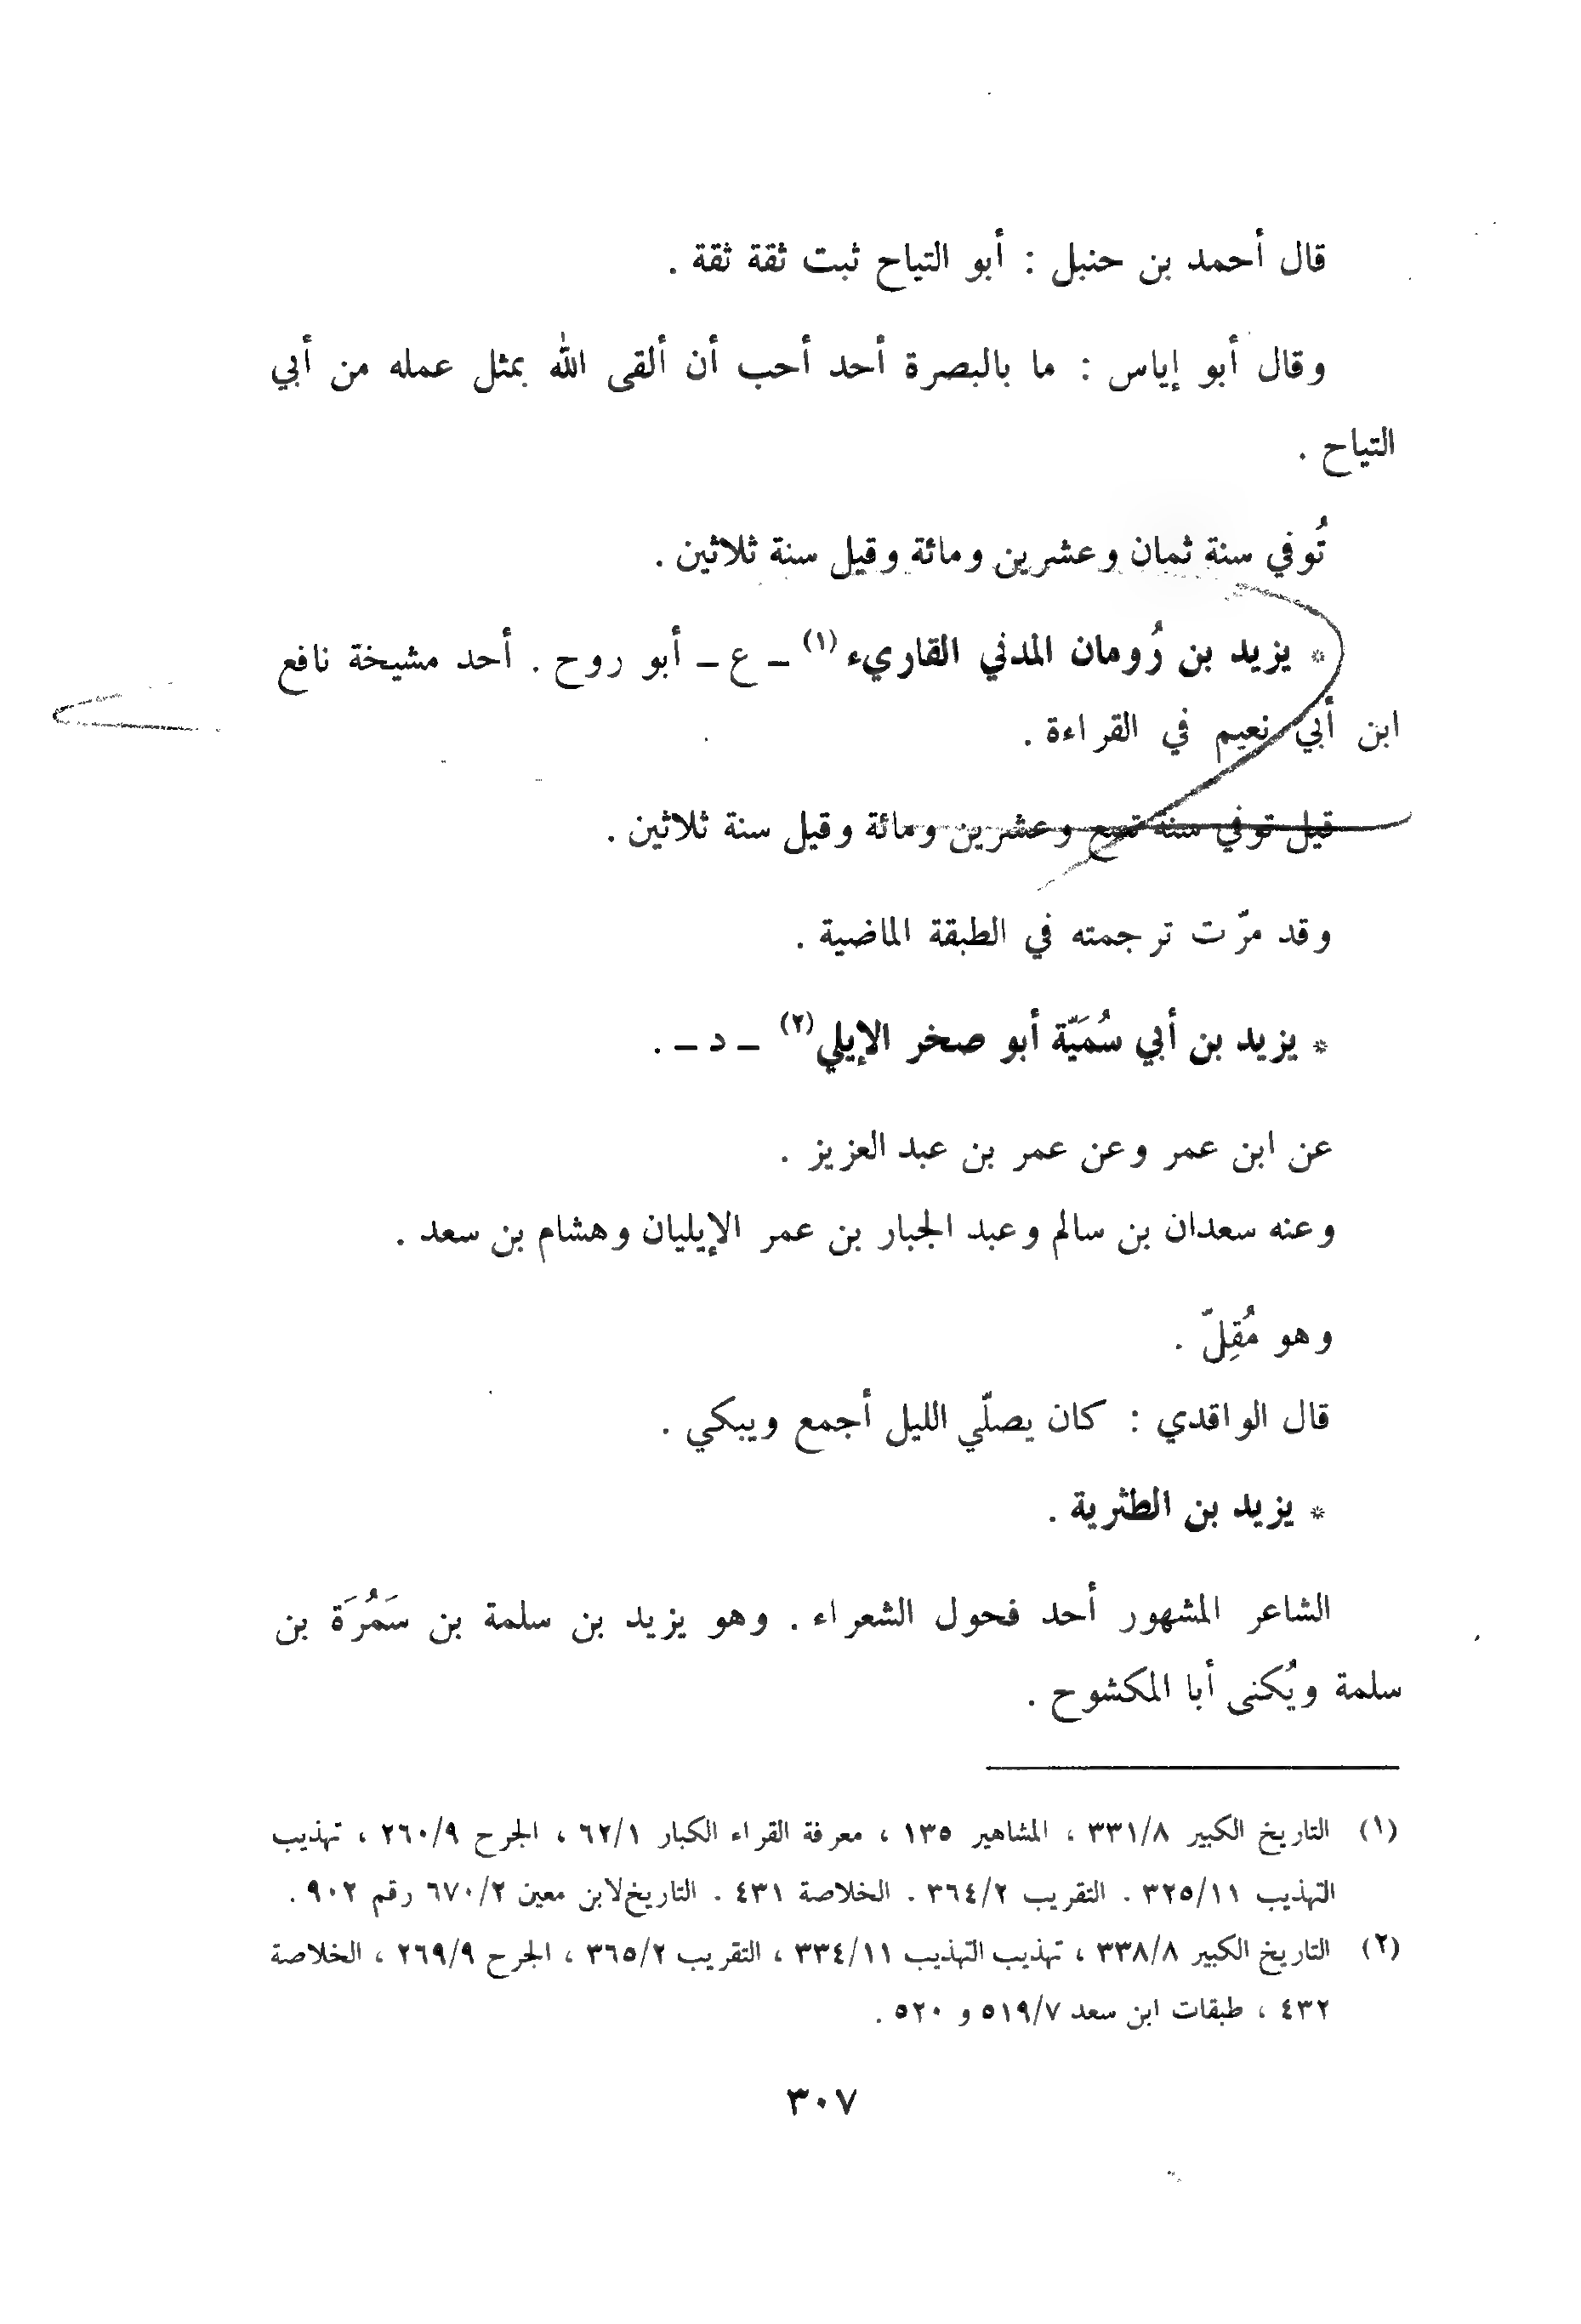 قال أحمد بن حنبل : أبو التياح ثبت ثقة ثقة .
وقال أبو إياس : ما بالبصرة أحد أحب أن ألقى الله بمثل عمله من أبي
التياح .
تُوفي سنة ثمان وعشرين ومائة وقيل سنة ثلاثين .
* يزيد بن رُومان المدني القاريء (١) ـ ع ـ أبو روح . أحد مشيخة نافع
ابن أبي نعيم في القراءة .
قيل توفي سنة تسع وعشرين ومائة وقيل سنة ثلاثين .
وقد مرّت ترجمته في الطبقة الماضية .
* يزيد بن أبي سُمَيّة أبو صخر الإيلي (٢) ـ د ـ .
عن ابن عمر وعن عمر بن عبد العزيز .
وعنه سعدان بن سالم وعبد الجبار بن عمر الإيليان وهشام بن سعد .
وهو مُقِلّ .
قال الواقدي : كان يصلّي الليل أجمع ويبكي .
* يزيد بن الطثرية .
الشاعر المشهور أحد فحول الشعراء . وهو يزيد بن سلمة بن سَمُرَة بن
سلمة ويُكنى أبا المكشوح .
(١) التاريخ الكبير ٣٣١/٨ ، المشاهير ١٣٥ ، معرفة القراء الكبار ٦٢/١ ، الجرح ٢٦٠/٩ ، تهذيب
التهذيب ٣٢٥/١١ . التقريب ٣٦٤/٢ . الخلاصة ٤٣١ . التاريخ لابن معين ٦٧٠/٢ رقم ٩٠٢ .
(٢) التاريخ الكبير ٣٣٨/٨ ، تهذيب التهذيب ٣٣٤/١١ ، التقريب ٣٦٥/٢ ، الجرح ٢٦٩/٩ ، الخلاصة
٤٣٢ ، طبقات ابن سعد ٥١٩/٧ و ٥٢٠ .
٣٠٧